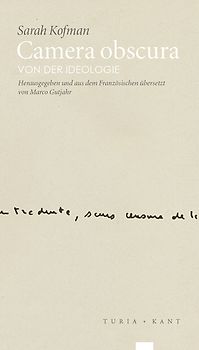 Sarah Kofman
Camera obscura
VON DER IDEOLOGIE
Herausgegeben und aus dem Französischen übersetzt
von Marco Gutjahr
sans censure de l
TURIA + KANT